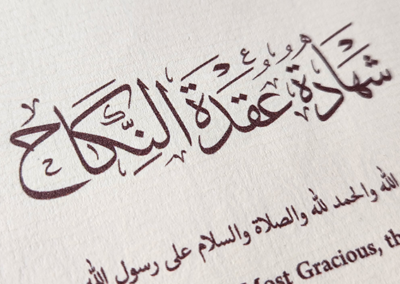 شهادة عُقدة النِّكاح
الله والحمد لله والصلاة والسلام على رسول الله
Most Gracious, th